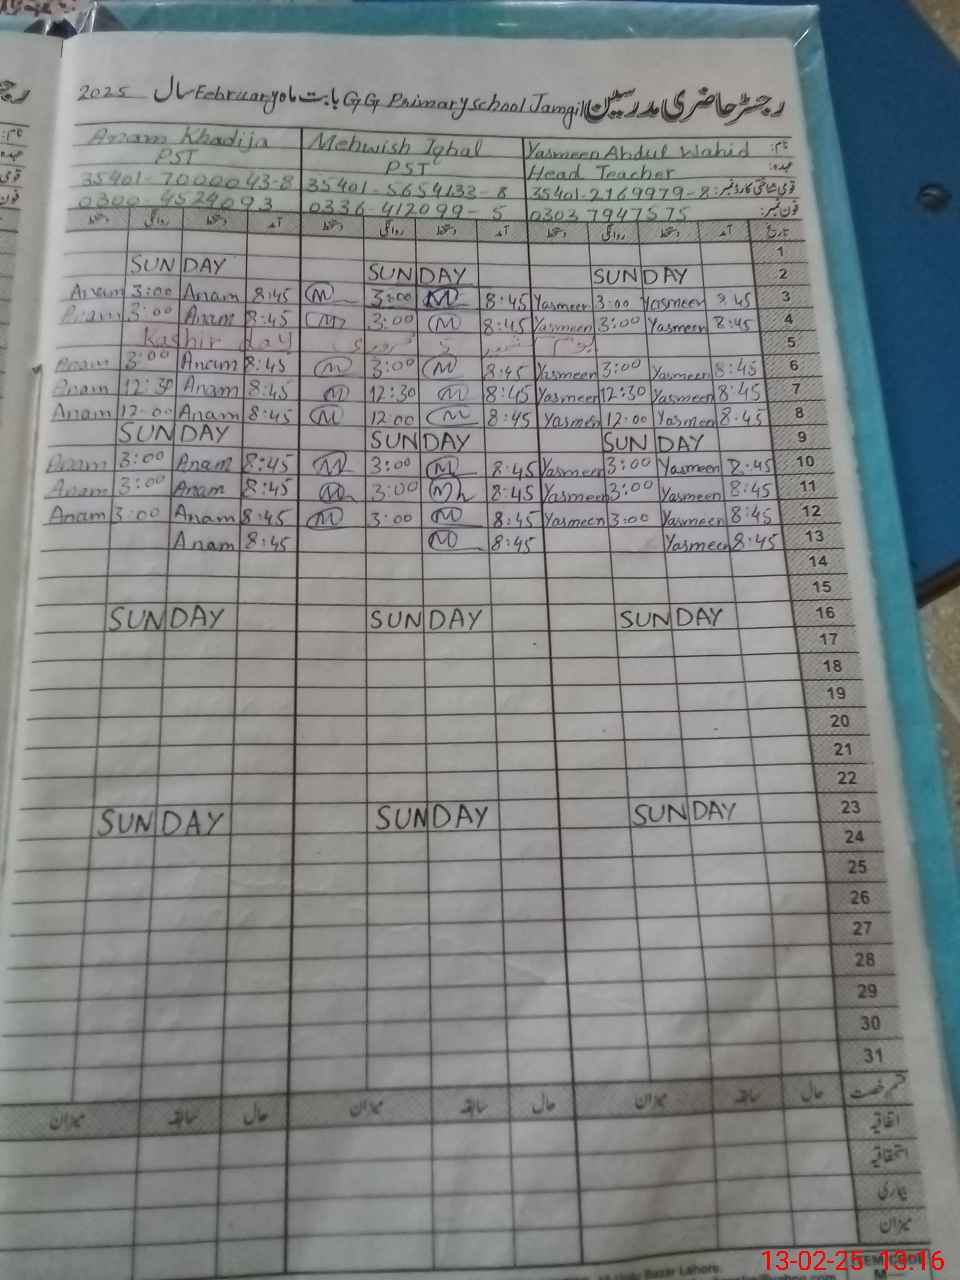 رجسٹر حاضری مدرسین GG Primary school Jamgil بابت ماہ February سال 2025
نام: Yasmeen Abdul Wahid Mehwish Iqbal Anam Khadija
عہدہ: Head Teacher PST PST
قومی شناختی کارڈ نمبر: 35401-2169979-8 35401-5654133-8 35401-7000043-8
فون نمبر: 0303 7947575 0336-412099-5 0300-4524093
تاریخ آمد دستخط روانگی دستخط آمد دستخط روانگی دستخط آمد دستخط روانگی دستخط
1
2 SUNDAY SUNDAY SUNDAY
3 8:45 Yasmeen 3:00 Yasmeen 8:45 M 3:00 M 8:45 Anam 3:00 Anam
4 8:45 Yasmeen 3:00 Yasmeen 8:45 M 3:00 M 8:45 Anam 3:00 Anam
5 Kashir day
6 8:45 Yasmeen 3:00 Yasmeen 8:45 M 3:00 M 8:45 Anam 3:00 Anam
7 8:45 Yasmeen 12:30 Yasmeen 8:45 M 12:30 M 8:45 Anam 12:30 Anam
8 8:45 Yasmeen 12:00 Yasmeen 8:45 M 12:00 M 8:45 Anam 12:00 Anam
9 SUNDAY SUNDAY SUNDAY
10 8:45 Yasmeen 3:00 Yasmeen 8:45 M 3:00 M 8:45 Anam 3:00 Anam
11 8:45 Yasmeen 3:00 Yasmeen 8:45 M 3:00 M 8:45 Anam 3:00 Anam
12 8:45 Yasmeen 3:00 Yasmeen 8:45 M 3:00 M 8:45 Anam 3:00 Anam
13 8:45 Yasmeen 8:45 M 8:45 Anam
14
15
16 SUNDAY SUNDAY SUNDAY
17
18
19
20
21
22
23 SUNDAY SUNDAY SUNDAY
24
25
26
27
28
29
30
31
قسم رخصت حال سابقہ میزان حال سابقہ میزان حال سابقہ میزان
اتفاقیہ
استحقاقیہ
بیماری
میزان
Bazar Lahore.
13-02-25 13:16